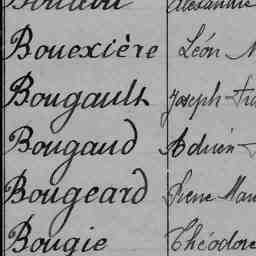 Alexandre
Bouexière Léon
Bougault Joseph
Bougaud Adrien
Bougeard Pierre
Bougie Théodore